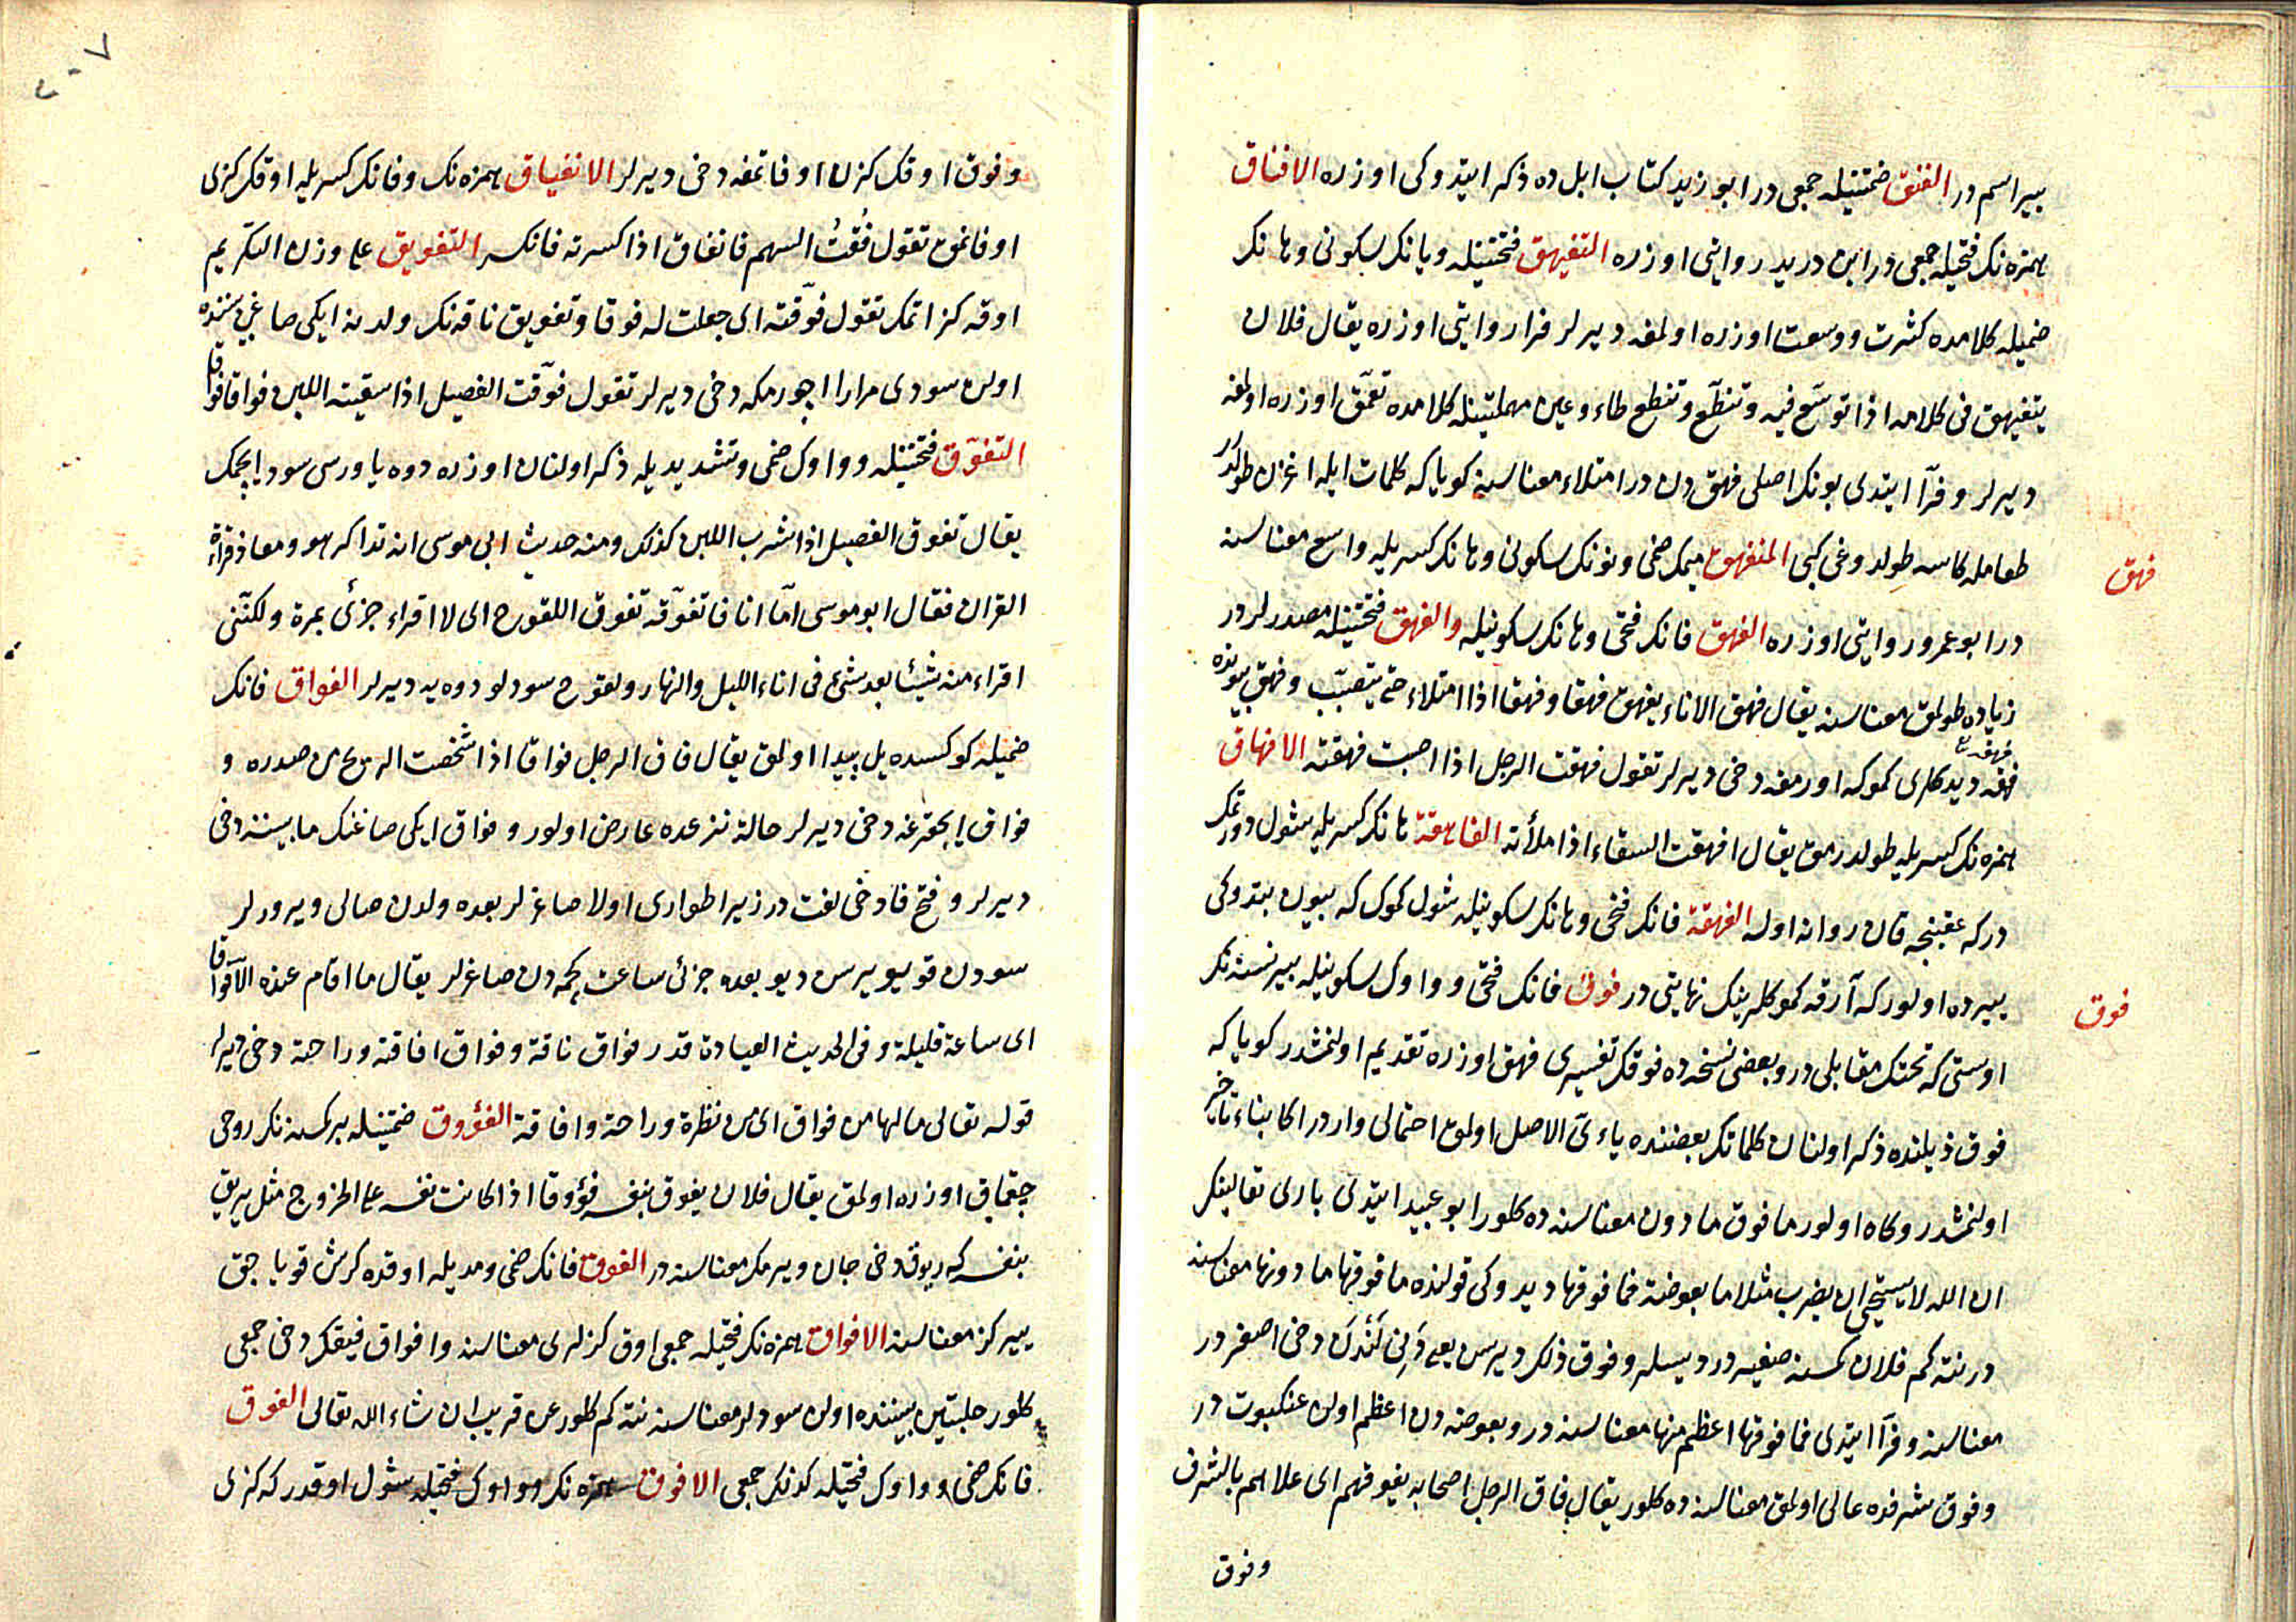 بیر اسم در الفنق ضمتینله جمعی در ابو زید کتاب ابل ده ذکر ایتدوکی اوزره الافناق
همزه نک فتحیله جمعی در ابن درید روایتی اوزره التفیهق فتحتینله و یانک سکونی و هانک
ضمیله کلامده کثرت و وسعت اوزره اولمغه دیرلر فرا روایتی اوزره یقال فلان
یتفیهق فی کلامه اذا توسّع فیه و تنطّع و تنطع طاء و عین مهملتینله کلامده تعمّق اوزره اولمغه
دیرلر و فرّآ ایتدی بونک اصلی فهق دن در امتلاء معناسنه کویا که کلمات ایله اغزن طولدر
طعامله کاسه طولدوغی کبی المنفهق میمک ضمی و نونک سکونی و هانک کسریله واسع معناسنه
فهق
در ابو عمرو روایتی اوزره الفهق فانک فتحی و هانک سکونیله والفهق فتحتینله مصدرلردر
زیاده طولمق معناسنه یقال فهق الاناء یفهق فهقا و فهقا اذا امتلاء حتی یتصبّب و فهق بیونده
فهقه دیدکلری کموکه اورمغه دخی دیرلر تقول فهقت الرجل اذا اصبت فهقته الافهاق
فهقه
همزه نک کسریله طولدرمق یقال افهقت السقاء اذا ملأته الفاهقة هانک کسریله شول دورتمک
درکه عقبنجه قان روانه اوله الفهقة فانک فتحی و هانک سکونیله شول کموک که بیون بتدوکی
یرده اولور که آرقه کموکلرینک نهایتی در فوق فانک فتحی و واوک سکونیله بیر نسنه نک
فوق
اوستی که تحتک مقابلی در و بعضی نسخه ده فوقک تفسیری فهق اوزره تقدیم اولنمشدر کویا که
فوق ذیلنده ذکر اولنان کلماتک بعضنده یاءیّ الاصل اولمق احتمالی واردر اکا بناء تاخیر
اولنمشدر و کاه اولور ما فوق ما دون معناسنه ده کلور ابو عبید ایتدی باری تعالینک
ان الله لا یستحیی ان یضرب مثلا ما بعوضة فما فوقها دیدوکی قولنده ما فوقها ما دونها معناسنه
در نته کم فلان کمسنه صغیردر دیسلر و فوق ذلک دیرسن یعنی دخی اصغر در
معناسنه و فرّآ ایتدی فما فوقها اعظم منها معناسنه در و بعوضه دن اعظم اولن عنکبوت در
و فوق شرفده عالی اولمق معناسنه ده کلور یقال فاق الرجل اصحابه یفوقهم ای علاهم بالشرف
و فوق
و فوق اوقک کزن اوفاتمغه دخی دیرلر الانفیاق همزه نک و فانک کسریله اوقک کزی
اوفانمق تقول فُقتُ السهم فانفاق اذا کسرته فانکسر التفویق علی وزن التکریم
اوقه کز اتمک تقول فوّقته ای جعلت له فوقا و تفویق ناقه نک ولدینه ایکی صاغم بیننده
اولن سودی مرارا اچورمکه دخی دیرلر تقول فوّقت الفصیل اذا سقیته اللبن فواقا فواقا
التفوّق فتحتینله و واوک ضمی و تشدیدیله ذکر اولنان اوزره دوه یاوریسی سود ایچمک
یقال تفوق الفصیل اذا شرب اللبن کذلک و منه حدیث ابی موسی انه تذاکر هو و معاذ قراءة
القران فقال ابو موسی امّا انا فاتفوّقه تفوق اللقوح ای لا اقراء جزئی بمرة و لکنّنی
اقراء منه شیئا بعد شئ فی اناء اللیل و النهار و لقوح سودلو دوه یه دیرلر الفواق فانک
ضمیله کوکسده یل پیدا اولمق یقال فاق الرجل فواقا اذا شخصت الریح من صدره و
فواق ایچقرغه دخی دیرلر حالة نزعده عارض اولور و فواق ایکی صاغنک مابیننه دخی
دیرلر و فتح فا دخی لغت در زیرا طواری اولا صاغرلر بعده ولدن صالی ویرورلر
سودن قویویرسن دیو بعده جزئی ساعت کچمه دن صاغرلر یقال ما اقام عنده الّا فواقا
ای ساعة قلیلة و فی الحدیث العیادة قدر فواق ناقة و فواق افاقة و راحة دخی دیرلر
قوله تعالی مالها من فواق ای من نظرة و راحة و افاقة الفؤوق ضمتینله بر کمسنه نک روحی
چقماق اوزره اولمق یقال فلان یفوق بنفسه فؤوقا اذا کانت نفسه علی الخروج مثل یریق
بنفسه که ریوق دخی جان ویرمک معناسنه در الفوق فانک ضمی و مدیله اوقده کرش قویاجق
ییر کز معناسنه الافواق همزه نک فتحیله جمعی اوق کزلری معناسنه و افواق فیقه نک دخی جمعی
کلور حلبتین بیننده اولن سودلر معناسنه نته کم کلور عن قریب ان شاء الله تعالی الفوق
فانک ضمی و واوک فتحیله کذلک جمعی الافوق همزه نک و واوک فتحیله شول اوقدر که کزی